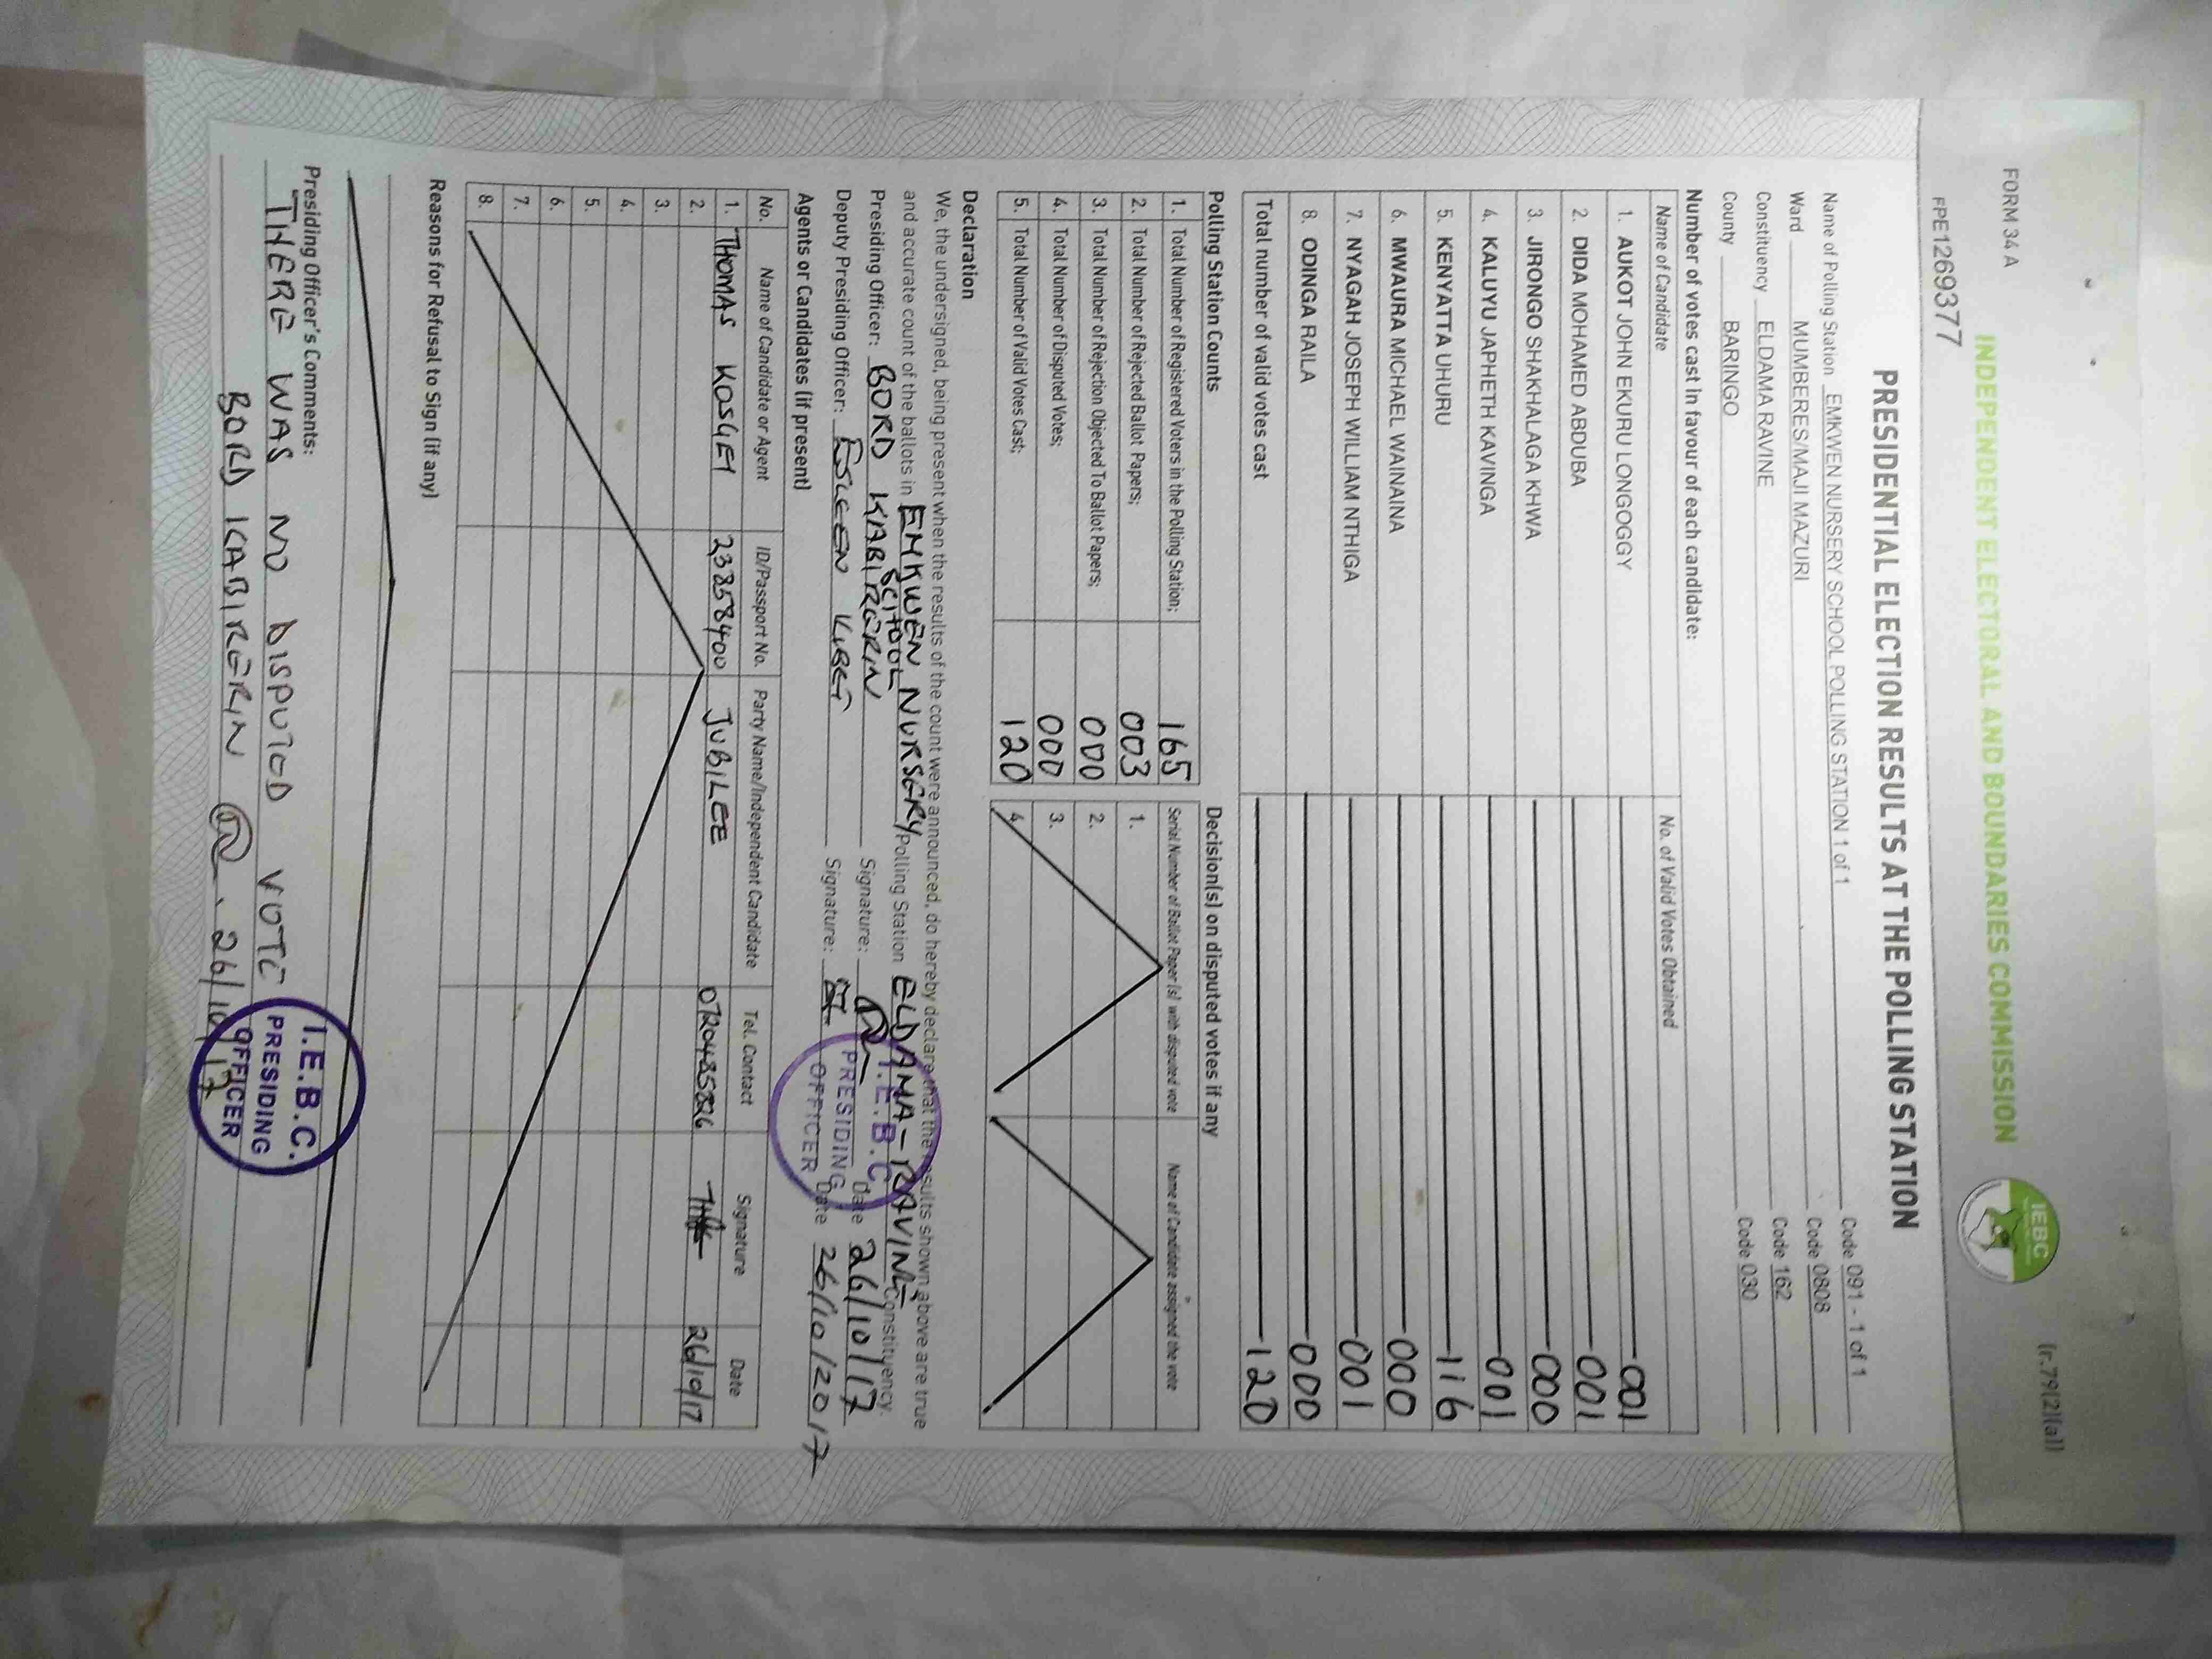 FORM 34 A
(r.79(2)(a))
INDEPENDENT ELECTORAL AND BOUNDARIES COMMISSION
IEBC
FPE1269377
PRESIDENTIAL ELECTION RESULTS AT THE POLLING STATION
Name of Polling Station EMKWEN NURSERY SCHOOL POLLING STATION 1 of 1 Code 091 - 1 of 1
Ward MUMBERES/MAJI MAZURI Code 0808
Constituency ELDAMA RAVINE Code 162
County BARINGO Code 030
Number of votes cast in favour of each candidate:
Name of Candidate No. of Valid Votes Obtained
1. AUKOT JOHN EKURU LONGOGGY 001
2. DIDA MOHAMED ABDUBA 001
3. JIRONGO SHAKHALAGA KHWA 000
4. KALUYU JAPHETH KAVINGA 001
5. KENYATTA UHURU 116
6. MWAURA MICHAEL WAINAINA 000
7. NYAGAH JOSEPH WILLIAM NTHIGA 001
8. ODINGA RAILA 000
Total number of valid votes cast 120
Polling Station Counts
1. Total Number of Registered Voters in the Polling Station; 165
2. Total Number of Rejected Ballot Papers; 003
3. Total Number of Rejection Objected To Ballot Papers; 000
4. Total Number of Disputed Votes; 000
5. Total Number of Valid Votes Cast; 120
Decision(s) on disputed votes if any
Serial Number of Ballot Paper (s) with disputed vote Name of Candidate assigned the vote
1.
2.
3.
4.
Declaration
We, the undersigned, being present when the results of the count were announced, do hereby declare that the results shown above are true
and accurate count of the ballots in EMKWEN NURSERY SCHOOL Polling Station ELDAMA-RAVINE Constituency.
Presiding Officer: BORD KIABIRERIN Signature: Date 26/10/17
Deputy Presiding Officer: KIBET Signature: Date 26/10/2017
I.E.B.C
PRESIDING
OFFICER
Agents or Candidates (if present)
No. Name of Candidate or Agent ID/Passport No. Party Name/Independent Candidate Tel. Contact Signature Date
1. THOMAS KOSGEI 23858400 JUBILEE 0720485826 26/10/17
2.
3.
4.
5.
6.
7.
8.
Reasons for Refusal to Sign (if any)
Presiding Officer's Comments:
THERE WAS NO DISPUTED VOTE
BORD KABIRERIN 26/10/17
I.E.B.C.
PRESIDING
OFFICER